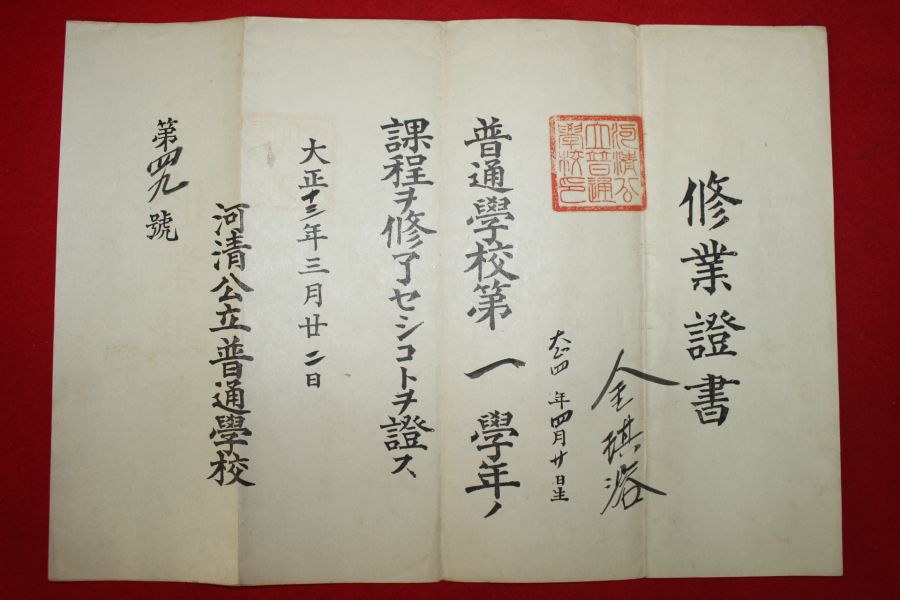 修業證書
金琪
大正四年四月廿日生
河清公
立普通
學校印
普通學校第一學年ノ
課程ヲ修了セシコトヲ證ス、
大正十三年三月廿二日
河清公立普通學校
第四九號